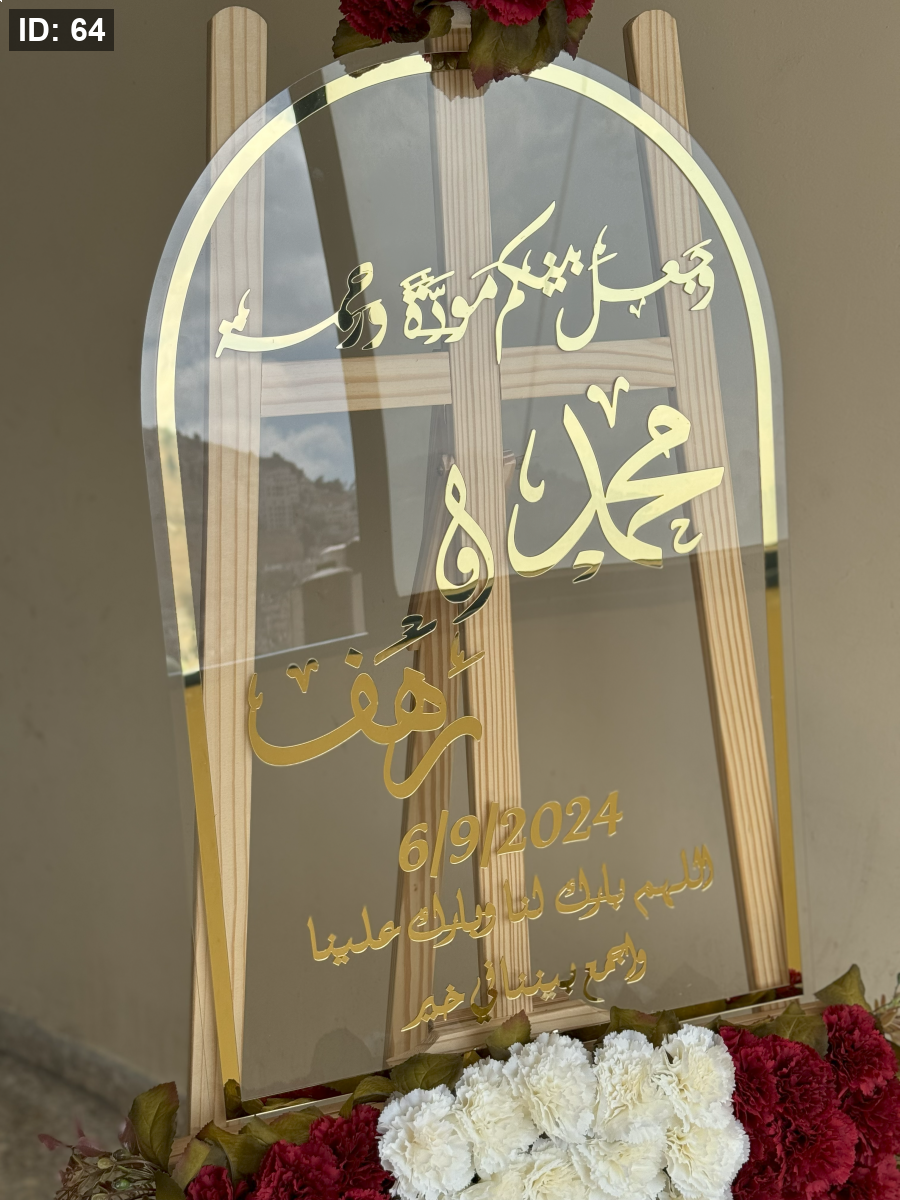 ID: 64
وجعل بينكم مودة ورحمة
محمد
و
رهف
6/9/2024
اللهم بارك لنا وبارك علينا
واجمع بيننا في خير